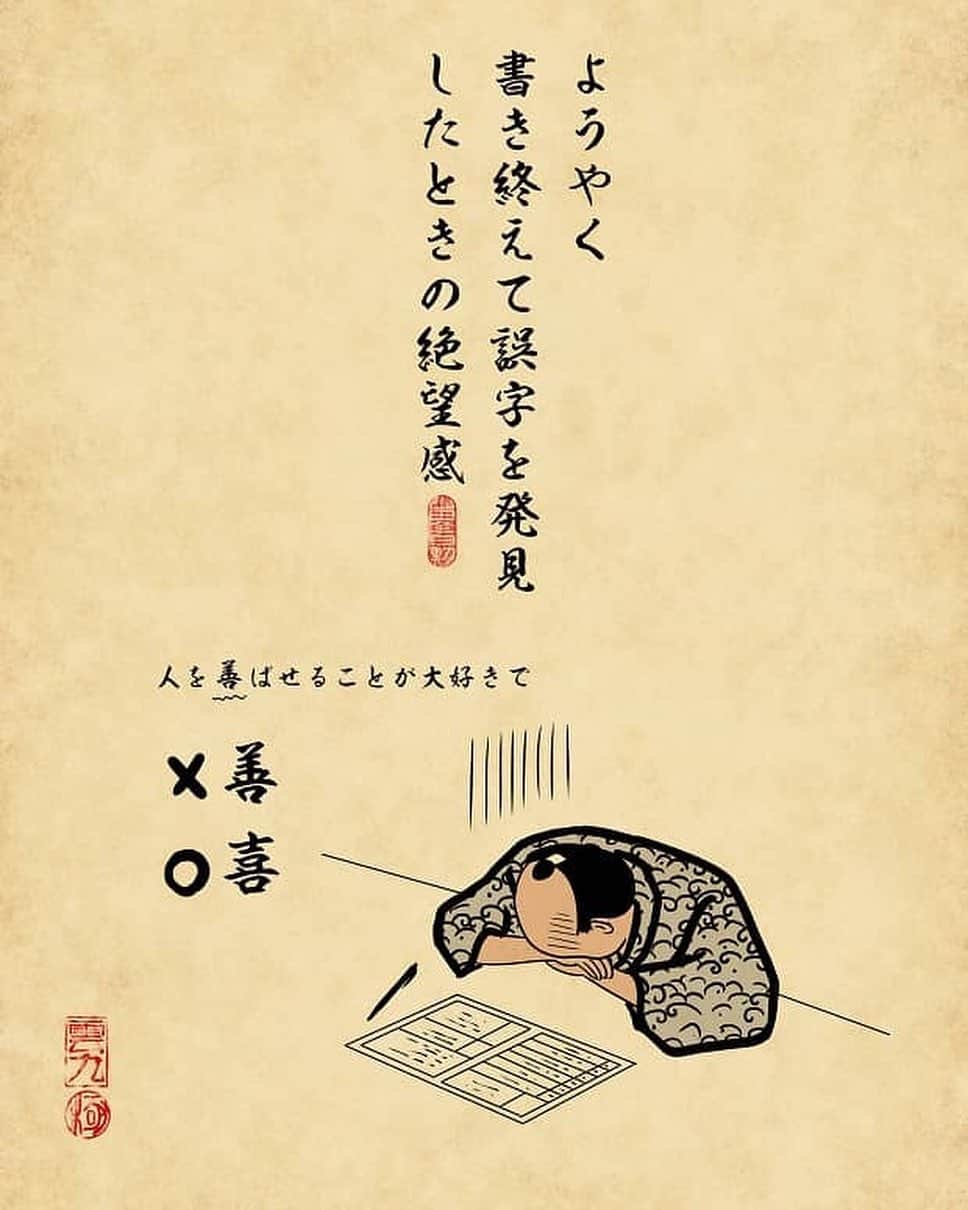 ようやく
書き終えて誤字を発見
したときの絶望感
人を善ばせることが大好きで
×善
○喜